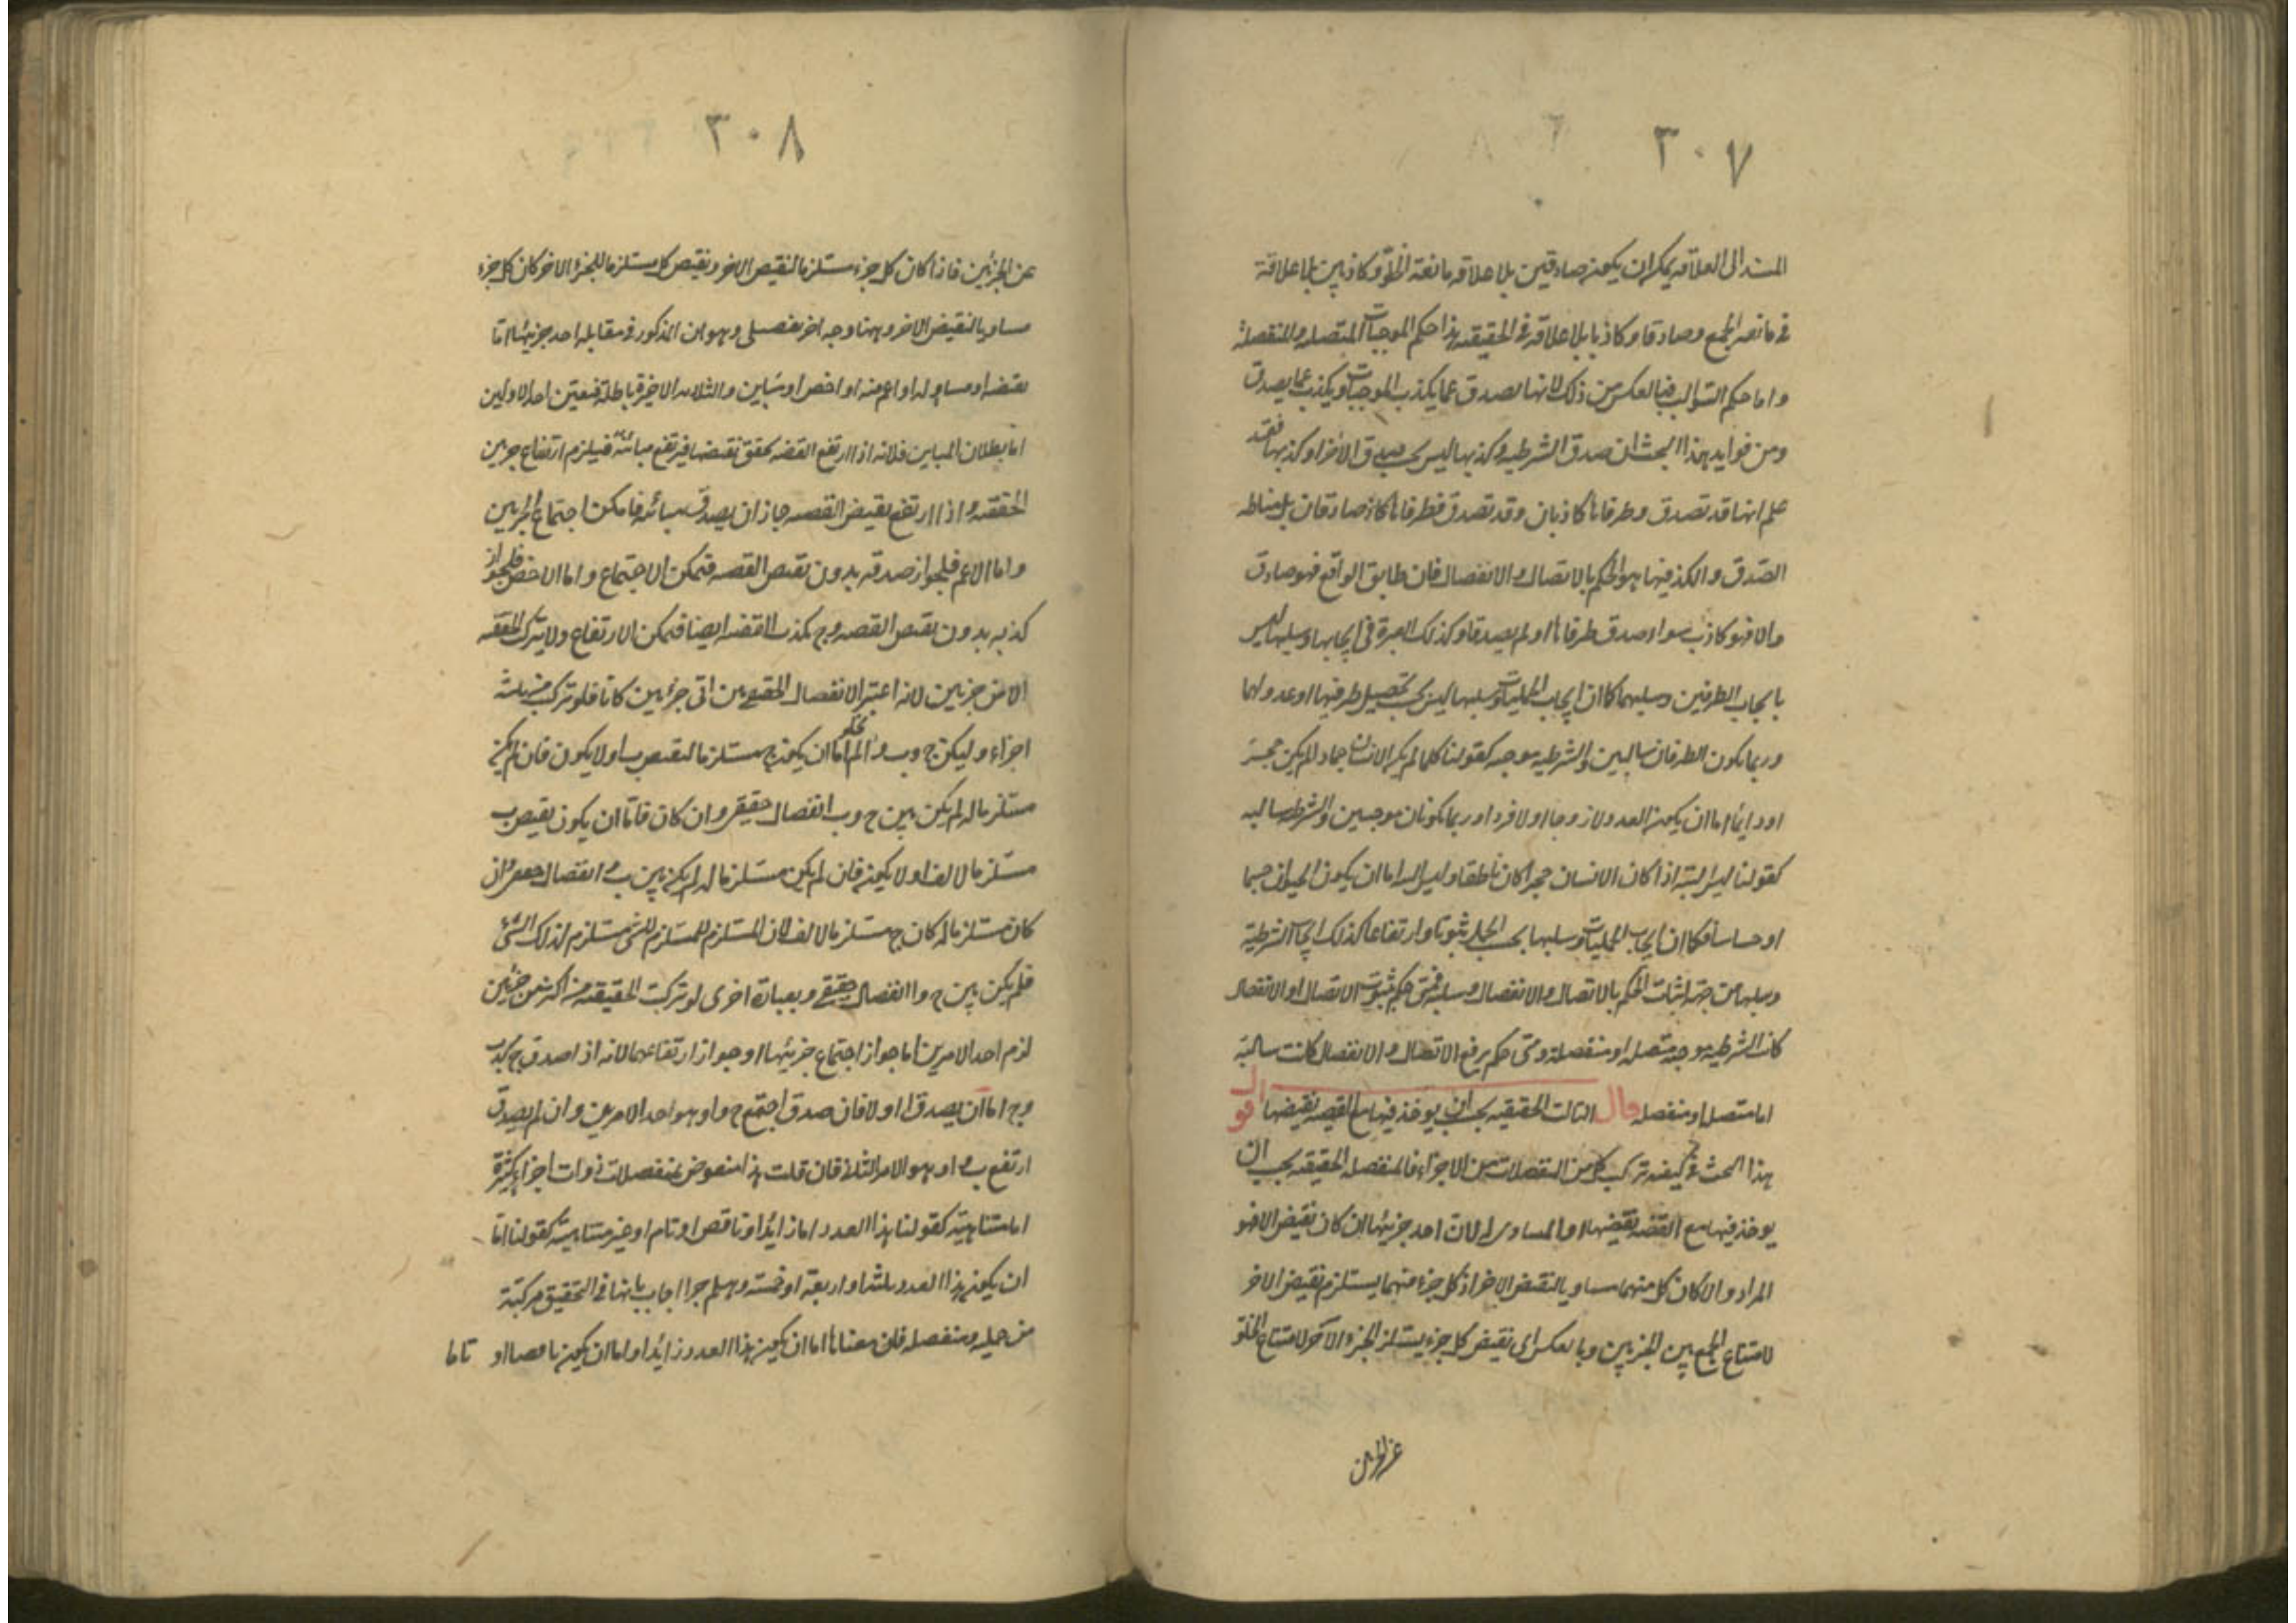 ٣٠٧
المستند الى العلاقه يمكن ان يكونا صادقين بلا علاقه مانعة الخلو وكاذبين بلا علاقة
فى مانعه الجمع وصادقا وكاذبا بلا علاقه فى الحقيقيه هذا حكم الموجبات المتصله والمنفصلة
واما حكم السوالب فبالعكس من ذلك لانها تصدق عما يكذب الموجبات ويكذب عما يصدق
ومن فوايد هذا البحث ان صدق الشرطيه وكذبها ليس بحسب صدق الاجزاء وكذبها فقد
علم انها قد تصدق وطرفاها كاذبان وقد تصدق وطرفاها صادقان بل مناط
الصدق والكذب فيها هو الحكم بالاتصال والانفصال فان طابق الواقع فهو صادق
والا فهو كاذب سواء صدق طرفاها او لم يصدقا وكذلك العبرة فى ايجابها وسلبها ليس
بايجاب الطرفين وسلبهما كما ان ايجاب الحمليات وسلبها ليس بحسب تحصيل طرفيها او عدولهما
وربما يكون الطرفان سالبين والشرطيه موجبه كقولنا كلما لم يكن الانسان جماد لم يكن حجر
او دايما اما ان يكون العدد لا زوجا او لا فردا وربما يكونان موجبين والشرطيه سالبه
كقولنا ليس البتة اذا كان الانسان حجرا كان ناطقا وليس البته اما ان يكون الحيوان جسما
او حساسا فكما ان ايجاب الحمليات وسلبها بحسب الحمل ثبوتا وارتفاعا كذلك ايجاب الشرطية
وسلبها من جهة اثبات الحكم بالاتصال والانفصال وسلبه فمتى حكم بثبوت الاتصال او الانفصال
كانت الشرطيه موجبه متصله او منفصلة ومتى حكم برفع الاتصال والانفصال كانت سالبة
اما متصلة او منفصله قال الثالث الحقيقيه يجب ان يوخذ فيها مع القضيه نقيضها اقول
هذا البحث فى كيفيه تركب كل من المنفصلات من الاجزاء فالمنفصله الحقيقيه يجب ان
يوخذ فيها مع القضيه نقيضها او المساوى له لان احد جزئيها ان كان نقيض الاخر فهو
المراد والا كان كل منهما مساويا لنقيض الاخر اذ كل جزء منهما يستلزم نقيض الاخر
لامتناع الجمع بين الجزئين وبالعكس اى نقيض كل جزء يستلزم الجزء الاخر لامتناع الخلو
عن الجزئين
٣٠٨
عن الجزئين فاذا كان كل جزء مستلزما لنقيض الاخر ونقيض كل مستلزما للجزء الاخر كان كل جزء
مساويا لنقيض الاخر وههنا وجه اخر تفصيلى وهو ان المذكور فى مقابله احد جزئيها اما
نقيضه او مساو له او اعم منه او اخص او مباين والثلاثه الاخيرة باطلة فتعين احد الاولين
اما بطلان المباين فلانه اذا ارتفع القضيه تحقق نقيضها فيرتفع مباينه فيلزم ارتفاع جزئين
الحقيقيه واذا ارتفع نقيض القضيه جاز ان يصدق مباينه فامكن اجتماع الجزئين
واما الاعم فلجواز صدقه بدون نقيض القضيه فيمكن الاجتماع واما الاخص فلجواز
كذبه بدون نقيض القضيه وح يكذب القضيه ايضا فيمكن الارتفاع ولا يتركب الحقيقيه
الا من جزئين لانه اعتبر الانفصال الحقيقى بين اى جزءين كانا فلو تركب من ثلثه
اجزاء وليكن ج وب وا لم يخل اما ان يكون ج مستلزما لنقيض ب او لا يكون فان لم يكن
مستلزما له لم يكن بين ج وب انفصال حقيقى وان كان فاما ان يكون نقيض ب
مستلزما لالف او لا يكون فان لم يكن مستلزما له لم يكن بين ب وا انفصال حقيقى وان
كان مستلزما له كان ج مستلزما لالف لان المستلزم للمستلزم للشئ مستلزم لذلك الشئ
فلم يكن بين ج وا انفصال حقيقى وبعبارة اخرى لو تركبت الحقيقيه من اكثر من جزئين
لزم احد الامرين اما جواز اجتماع جزئيها او جواز ارتفاعهما لانه اذا صدق ج كذب ب
وح اما ان يصدق ا او لا فان صدق اجتمع ج وا وهو احد الامرين وان لم يصدق
ارتفع ب وا وهو الامر الثانى فان قلت هذا منقوض بمنفصلات ذوات اجزاء كثيرة
اما متناهية كقولنا هذا العدد اما زائدا او ناقص او تام او غير متناهية كقولنا اما
ان يكون هذا العدد ثلثه او اربعة او خمسة وهلم جرا اجاب بانها فى التحقيق مركبة
من حمليه ومنفصله فان معناها اما ان يكون هذا العدد زائدا واما ان يكون ناقصا او تاما